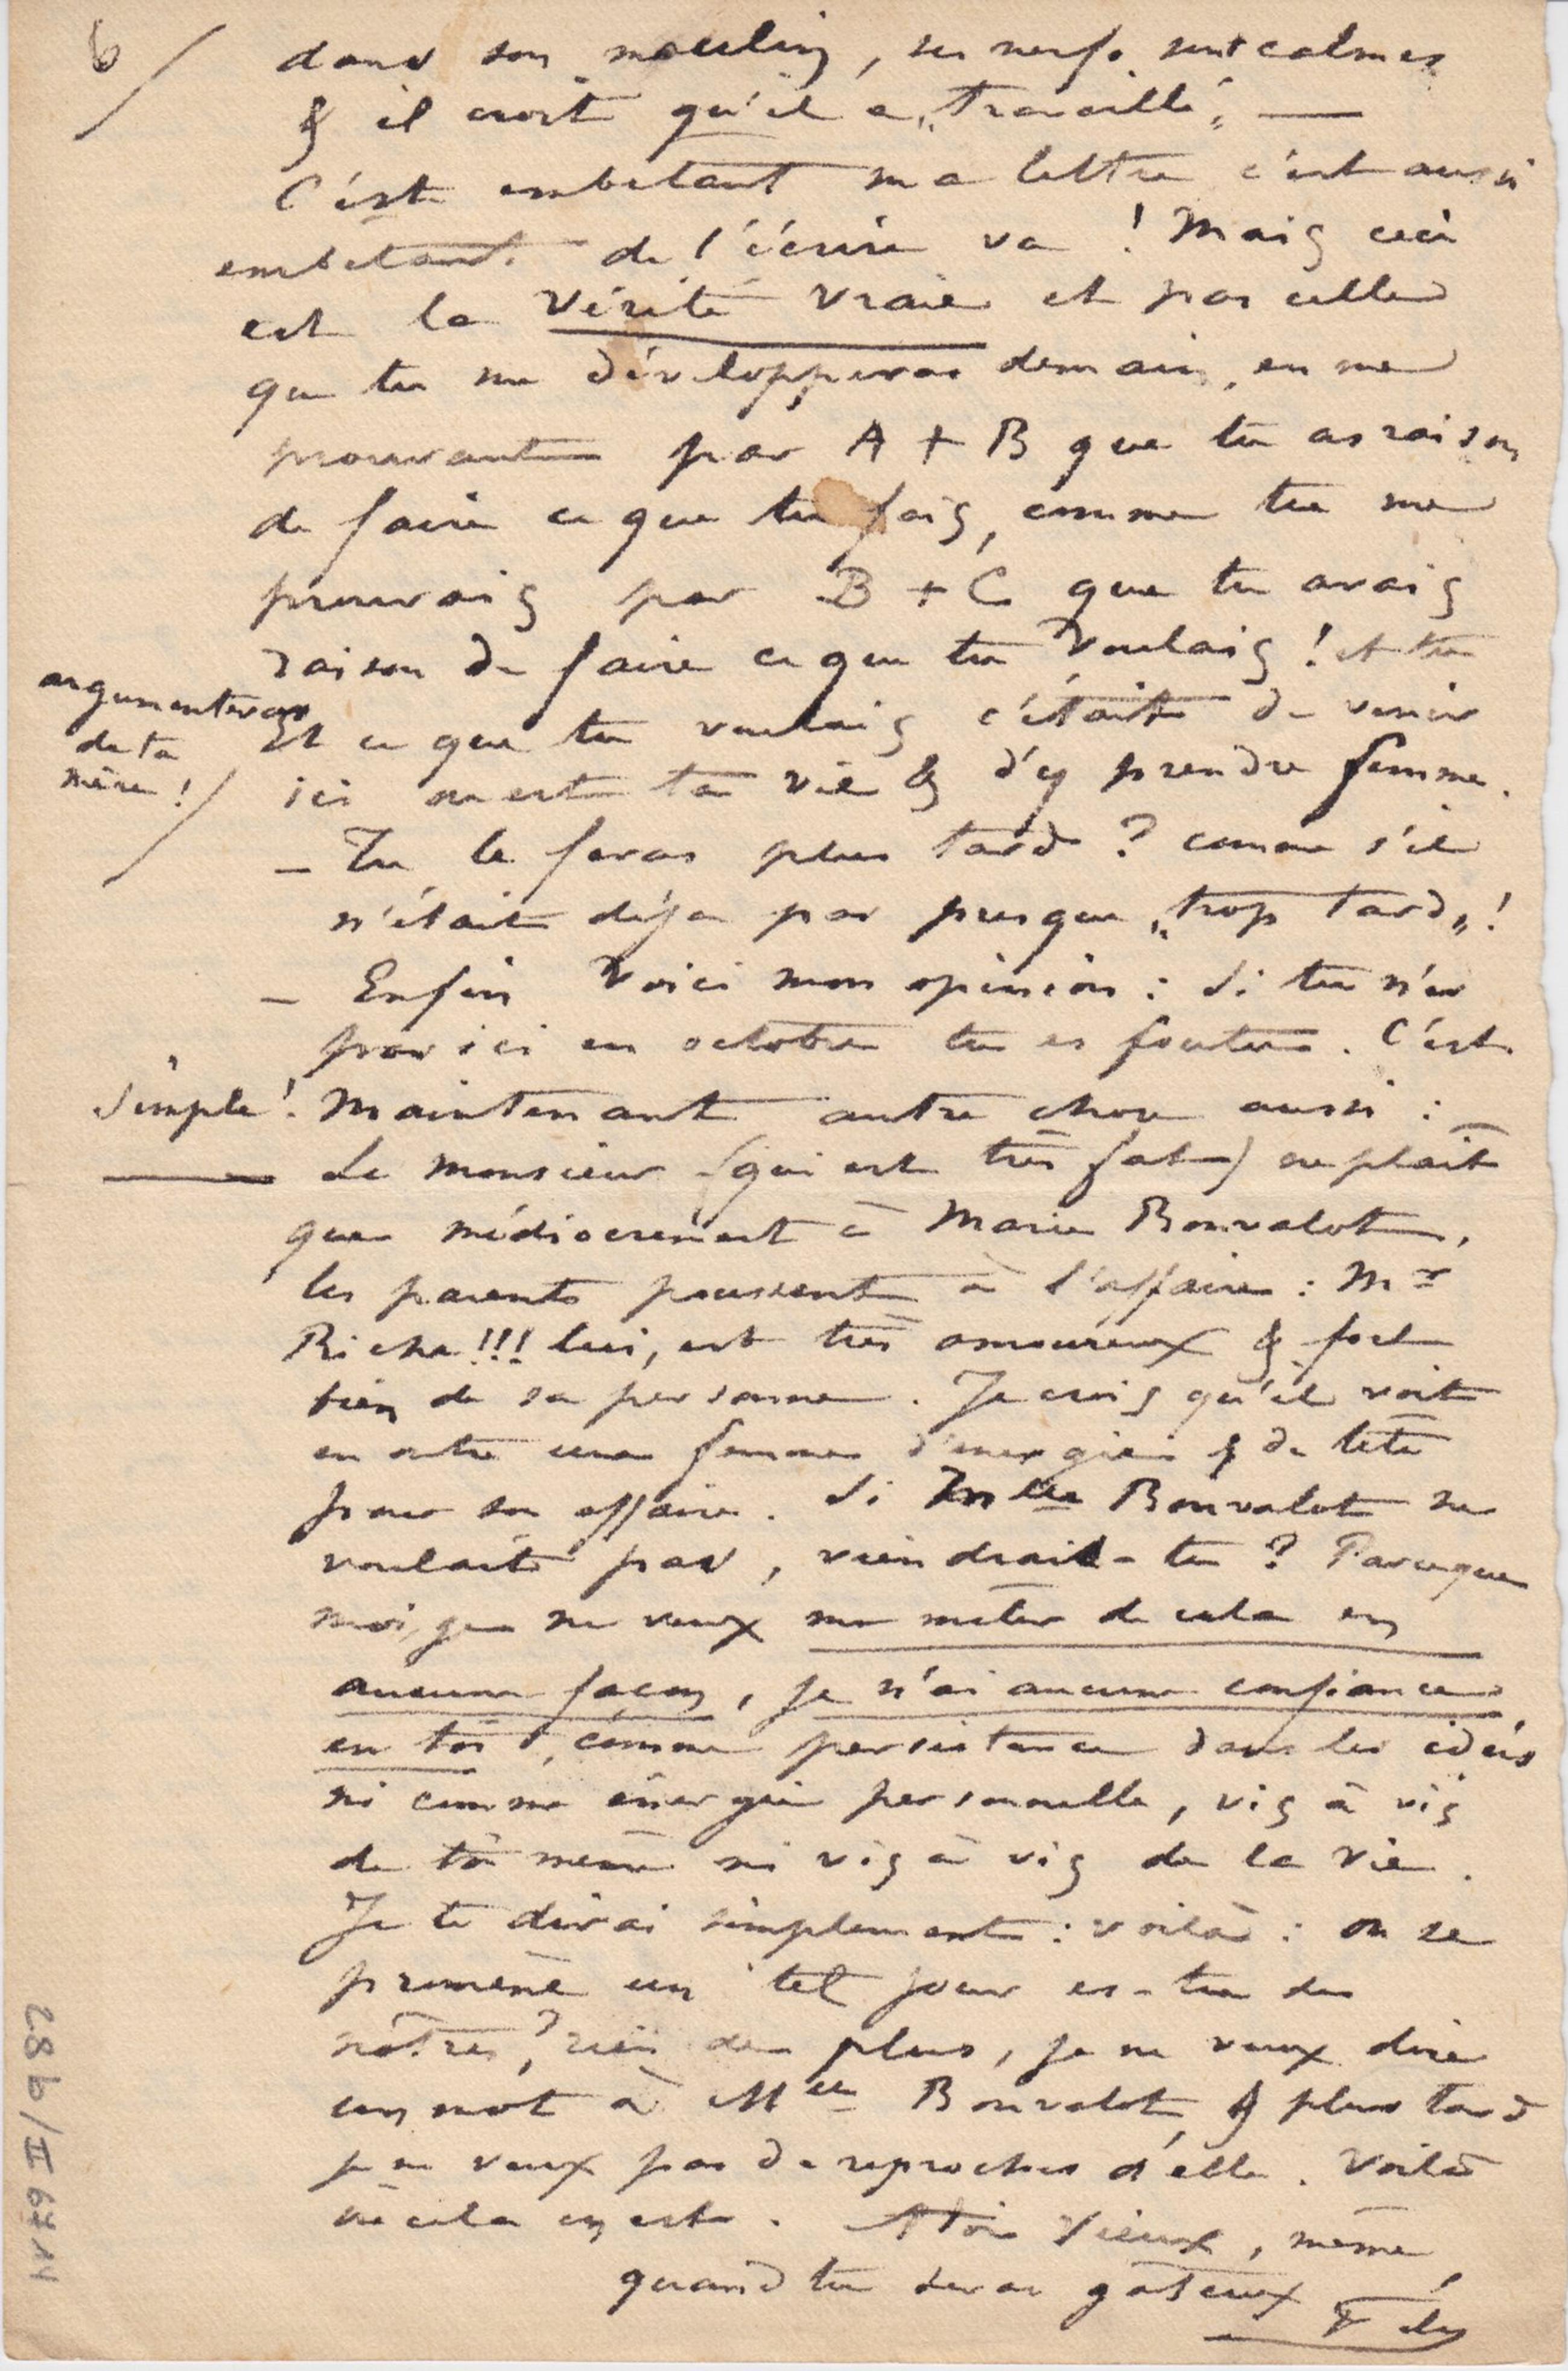 6/
dans son moulin, ses nerfs sont calmes
& il croit qu'il a „travaillé„ —
C'est embetant ma lettre c'est aussi
embetant de l'écrire va ! Mais ceci
est la Vérité Vraie et pas celle
que tu me développeras demain, en me
prouvant par A + B que tu as raison
de faire ce que tu fais, comme tu me
prouvais par B + C que tu avais
raison de faire ce que tu Voulais ! et tu
argumenteras
de ta
mère !/
Et ce que tu voulais c'était de venir
ici ou est ta vie & d'y prendre femme.
— Tu le feras plus tard ? comme s'il
n'était déja pas presque „trop tard„ !
— Enfin Voici mon opinion : Si tu n'es
pas ici en octobre tu es foutu. C'est
simple ! Maintenant autre chose aussi :
Le Monsieur (qui est très fat) ne plait
que médiocrement à Marie Bonvalot,
les parents poussent à l'affaire : Mr
Riche !!! lui, est très amoureux & fort
bien de sa personne. Je crois qu'il voit
en outre une femme d'energie & de tête
pour son affaire. Si Mlle Bonvalot ne
voulait pas, viendrait-tu ? Parceque
moi, je ne veux me mêler de cela en
aucune façon, je n'ai aucune confiance
en toi, comme persistance dans les idées
ni comme énergie personnelle, vis à vis
de toi même ni vis à vis de la Vie.
Je te dirai simplement : voilà : on se
promène un tel jour es-tu des
nôtres ? rien de plus, je ne veux dire
un mot à Mlle Bonvalot & plus tard
je ne veux pas de reproches d'elle. Voilà
où cela en est. A toi Vieux, même
quand tu seras gâteux
Fély
28 b/II 6711